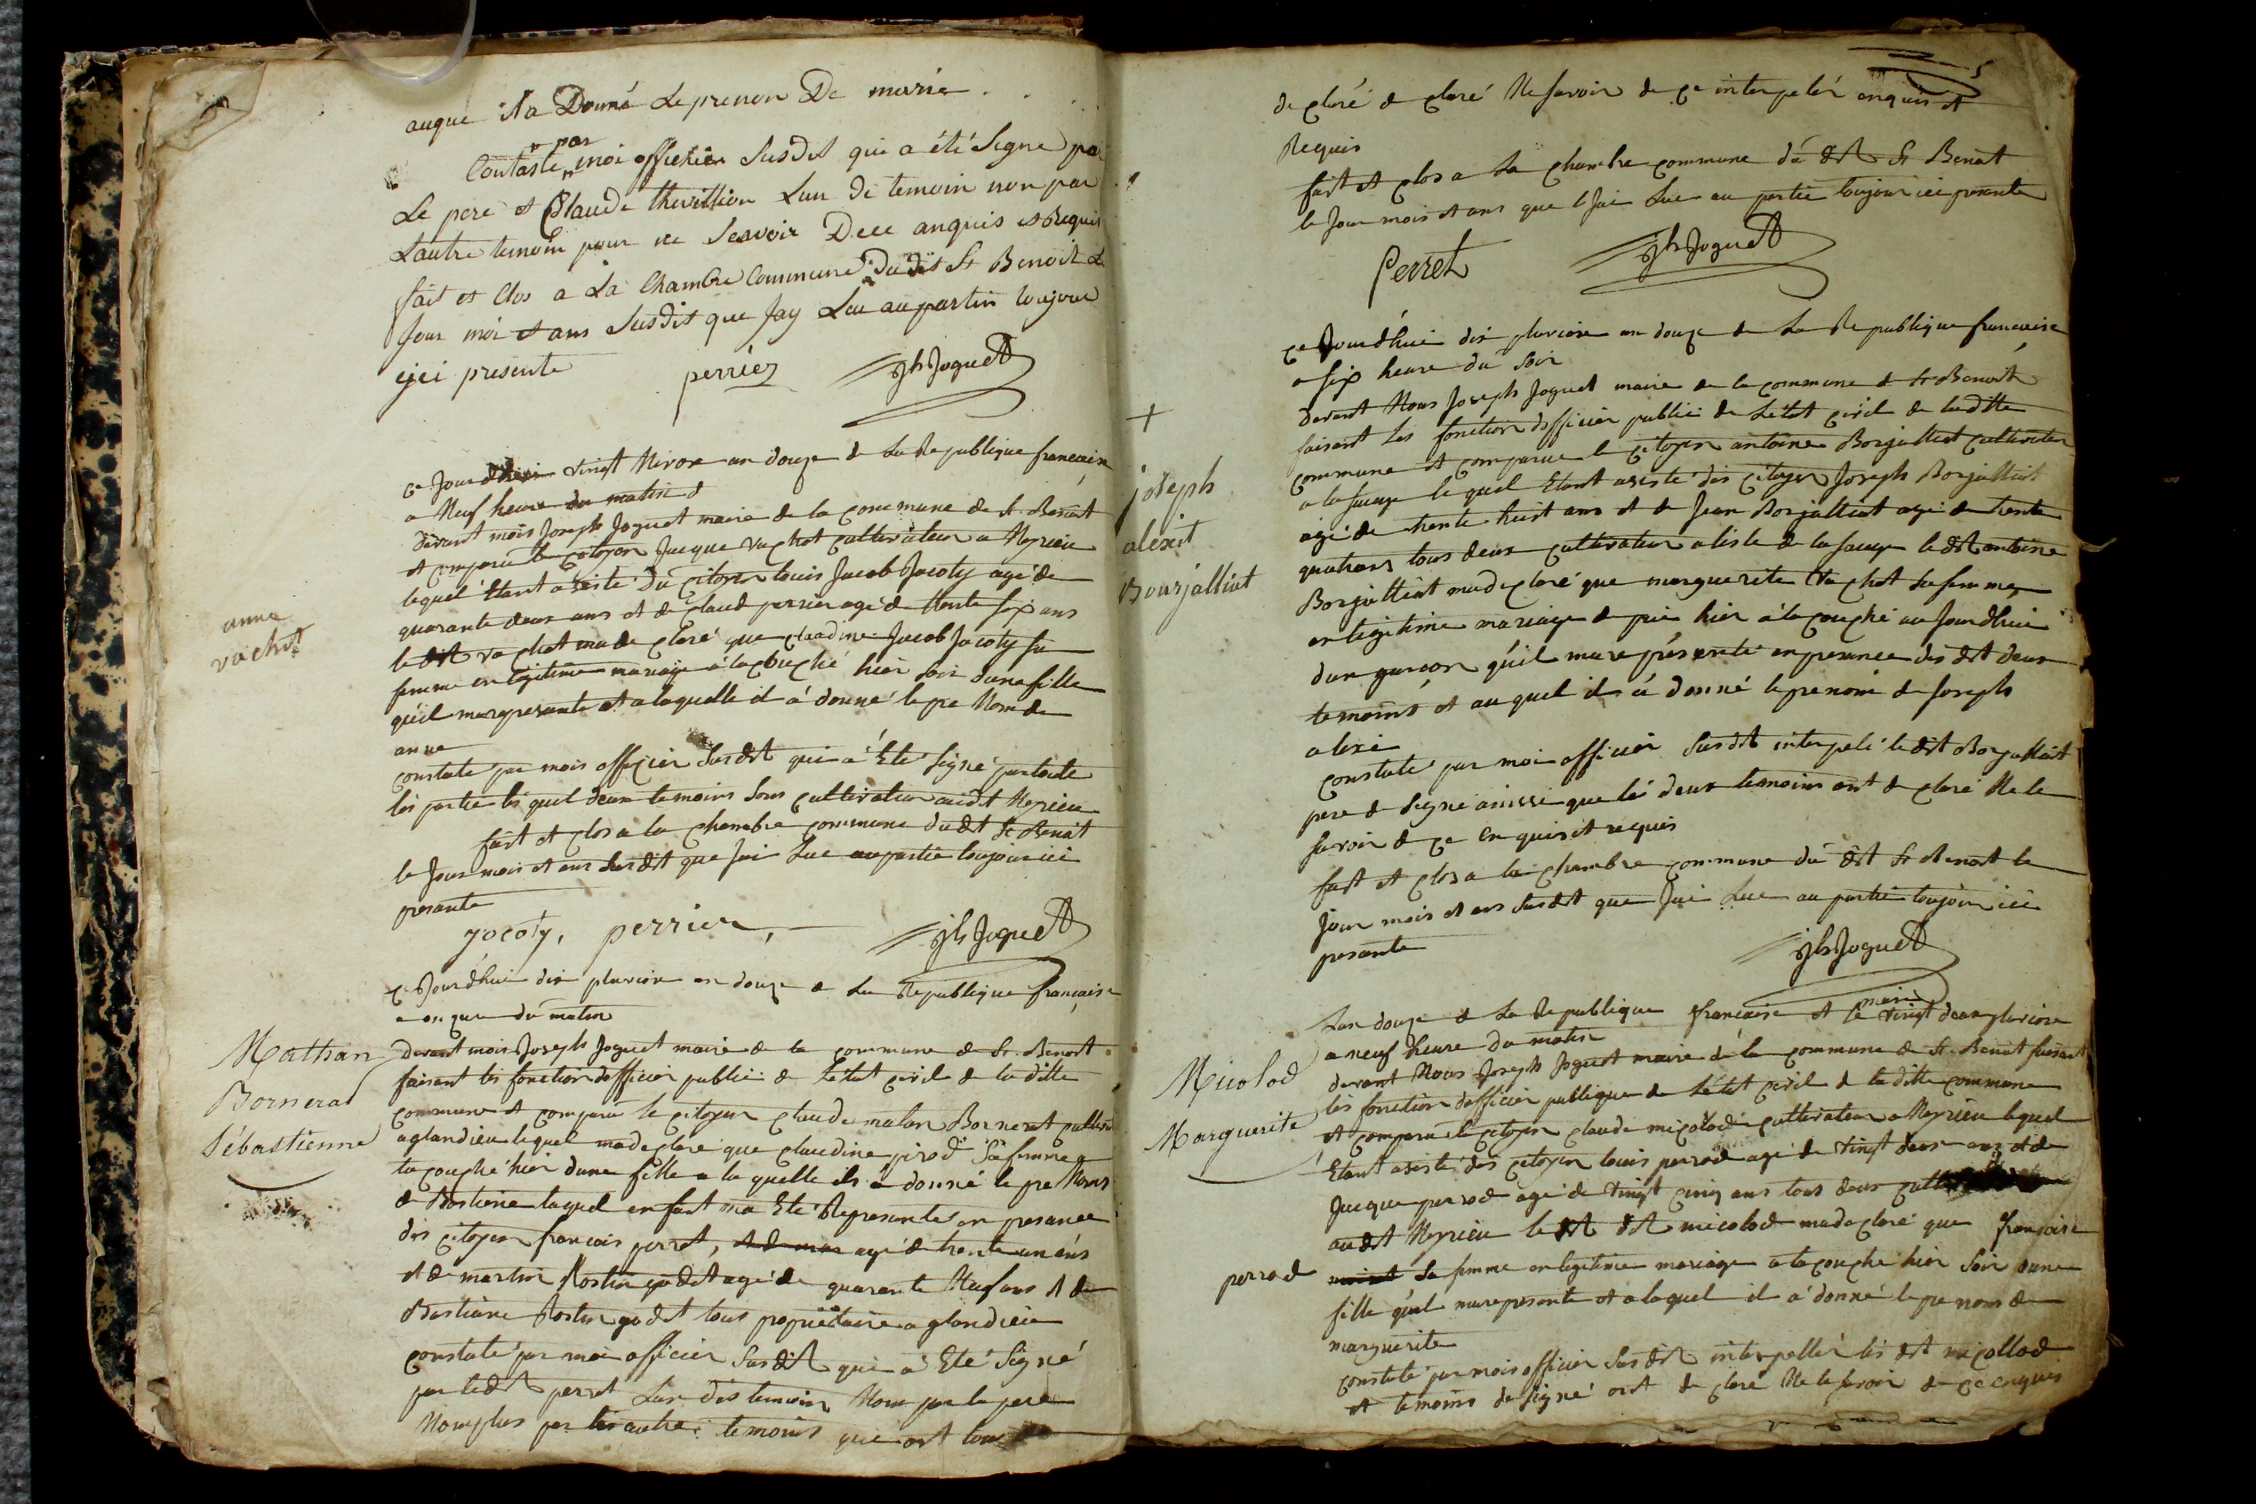 auque il a Donné Le prenon De marie
Contaste par moi officier Susdit qui a été Signe par
Le pere et Claude thevillion Lun de temoin non par
Lautre temoin pour ne Scavoir Dece anquis et Requis
fait et Clos a La Chambre Commune Du dit St Benoit Le
Jour moi et ans Susdit que Jay Lu au partin toujour
ijci presente perrier jh Joguet
ce Jourdhui vingt Nivose an douze de La Republique francaise
a Neuf heure du matin
devant mois Joseph Joguet maire de la commune de St Benoit
et comparu le citoyen Jacque vachot cultivateur a Meprieu
lequel Etant asisté du citoyen louis Jacob Jocoty agé de
quarante deux ans et de claud perrier agé de trente six ans
le dit vachot ma de claré que claudine Jacob Jocoty sa
femme en legitime mariage a la couché hier soir dune fille
anne
vachot
quil mare presente et a laquelle il a donné le pre Nom de
anne
constate par mois officier Susdit qui a Eté signé par toute
les partie les quel deux temoins sons cultivateur audit Meprieu
fait et clos a la chambre commune dudit St Benoit
le Jour mois et ans Susdit que Jai Lue au partie toujour ici
presante
Jocoty, perrier, jh Joguet
ce Jourdhui dix pluviose an douze de La Republique francaise
a onze du matin
Devant mois Joseph Joguet maire de la commune de St Benoit
faisant les fonction dofficier public de Létat civil de la ditte
commune et comparu le citoyen claude matan Bornerat
a glandieu lequel ma de claré que claudine girod sa femme
Mathan
Bornerat
Sébastienne
ta couché hier dune fille a la quelle il a donné le pre Nom
de Bastiene laquel enfant ma Eté Représenté en presance
des citoyen francois perret, agé de trente un ans
et de martin Rostin godet agé de quarante Neuf ans et de
Bastiane Rostin godet tous propriétaire a glandieu
constaté par moi officier Susdit qui a Eté Signé
par ledit perret Lun des temoin Non par le pere
Nomplus par les autre temoins qui ont tous
5
de claré de claré Ne savoir de ce interpelér enquis et
Requis
fait et clos a La chambre commune du dit St Benoit
le Jour mois et ans que Jai Lue au partie toujour ici presente
Perret jh Joguet
ce Jourdhui dix pluviose an douze de La Republique francaise
a six heure du soir
devant Nous Joseph Joguet maire de la commune de St Benoit
faisant les fonction dofficier public de Létat civil de laditte
commune et comparue le citoyen antoine Borjalliat cultivateur
a la sauge le quel Etant asisté des citoyen Joseph Borjalliat
+
joseph
alexit
Bourjalliat
agé de trente huit ans et de Jean Borjalliat agé de trente
quatrans tous deux cultivateur a lisle de la sauge le dit antoine
Borjalliat ma de claré que marguerite vachot sa femme
en legitime mariage de puis hier a la couché au Jourdhui
dun garcon quil mare présenté en presance des dit deux
temoins et au quel il a donné le prenom de Joseph
alexi
constaté par moi officier Susdit interpelé le dit Borjalliat
pere de signé ainssi que lé deux temoins ont de claré Ne le
savoir de ce Enquis et requis
fait et clos a la chambre commune du dit St Benoit le
jour mois et ans Susdit que Jai Lue au partie toujour ici
presante
jh Joguet
Lan douze de La Republique francaise et le vingt deux pluviose
a neuf heure du matin
devant Nous Joseph Joguet maire de la commune de St Benoit faisant
les fonction dofficier publique de Létat civil de la ditte commune
et comparu le citoyen claude micolod cultivateur a Meprieu lequel
Etant asisté des citoyen louis perrod agé de vingt deux ans et de
Micolod
Marguerite
Jacque perrod agé de vingt cinq ans tous deux
audit Meprieu le dit micolod ma de claré que francoise
perrod
sa femme en legitime mariage a la couché hier soir dune
fille quil mare presente et a laquel il a donné le pre nom de
marguerite
constaté par mois officier Susdit interpellér les dit micollod
et temoins de signé ont de claré Ne le savoir de ce enquis